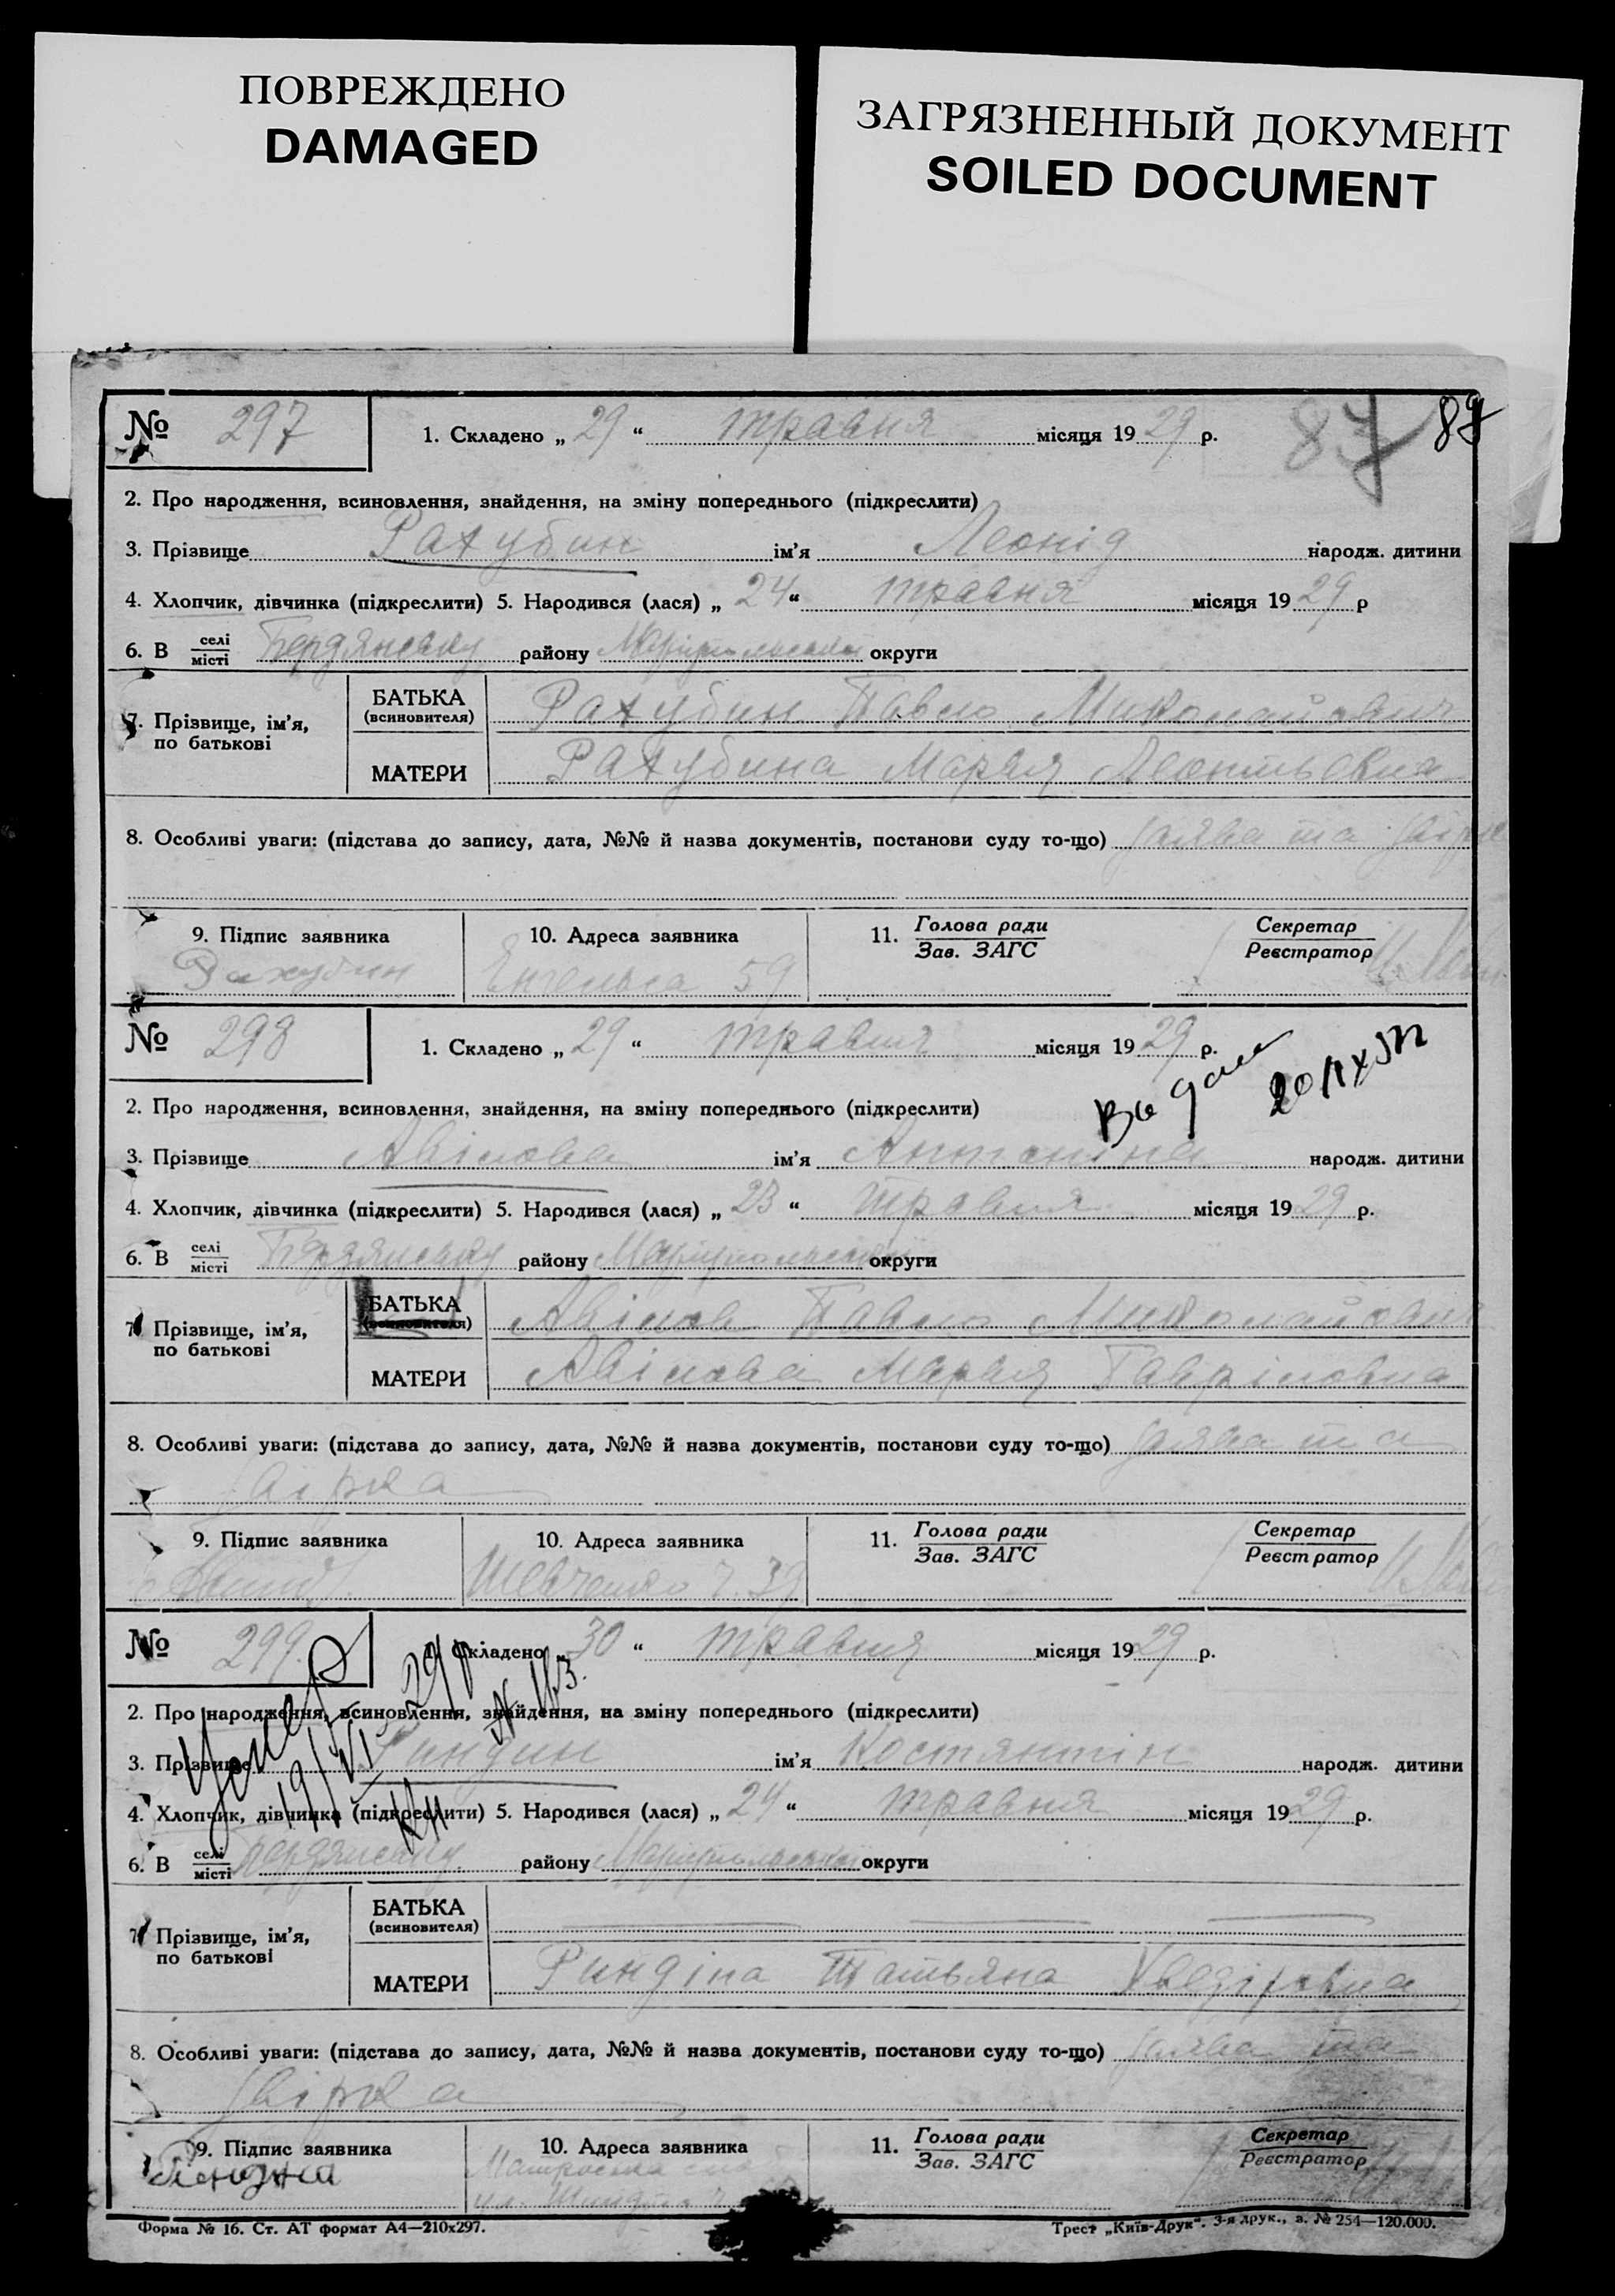 ПОВРЕЖДЕНО
DAMAGED
ЗАГРЯЗНЕННЫЙ ДОКУМЕНТ
SOILED DOCUMENT
№ 297 1. Складено „ 29 “ травня місяця 19 29 р. 87 87
2. Про народження, всиновлення, знайдення, на зміну попереднього (підкреслити)
3. Прізвище Рахубин ім’я Леонід народж. дитини
4. Хлопчик, дівчинка (підкреслити) 5. Народився (лася) „ 24 “ травня місяця 19 29 р
6. В селі місті Бердянську району Маріупольської округи
7. Прізвище, ім’я, по батькові
БАТЬКА (всиновителя) Рахубин Павло Миколайович
МАТЕРИ Рахубина Марья Леонтьевна
8. Особливі уваги: (підстава до запису, дата, №№ й назва документів, постанови суду то-що) заява та
9. Підпис заявника 10. Адреса заявника 11. Голова ради Зав. ЗАГС Секретар Реєстратор
Рахубин Енгельса 59
№ 298 1. Складено „ 29 “ травня місяця 19 29 р.
2. Про народження, всиновлення, знайдення, на зміну попереднього (підкреслити)
3. Прізвище Авілова ім’я Антоніна народж. дитини
4. Хлопчик, дівчинка (підкреслити) 5. Народився (лася) „ 23 “ травня місяця 19 29 р.
6. В селі місті Бердянську району Маріупольської округи
7. Прізвище, ім’я, по батькові
БАТЬКА (всиновителя) Авілов Павло Миколайович
МАТЕРИ Авілова Марья Гавріловна
8. Особливі уваги: (підстава до запису, дата, №№ й назва документів, постанови суду то-що) заява та
звірка
9. Підпис заявника 10. Адреса заявника 11. Голова ради Зав. ЗАГС Секретар Реєстратор
Шевченко 39
№ 299 1. Складено „ 30 “ травня місяця 19 29 р.
2. Про народження, всиновлення, знайдення, на зміну попереднього (підкреслити)
3. Прізвище Риндин ім’я Костянтін народж. дитини
4. Хлопчик, дівчинка (підкреслити) 5. Народився (лася) „ 24 “ травня місяця 19 29 р.
6. В селі місті Бердянську району Маріупольської округи
7. Прізвище, ім’я, по батькові
БАТЬКА (всиновителя)
МАТЕРИ Риндіна Татьяна
8. Особливі уваги: (підстава до запису, дата, №№ й назва документів, постанови суду то-що) заява та
звірка
9. Підпис заявника 10. Адреса заявника 11. Голова ради Зав. ЗАГС Секретар Реєстратор
Форма № 16. Ст. АТ формат А4—210х297. Трест „Київ-Друк“. 3-я друк., з. № 254—120.000.